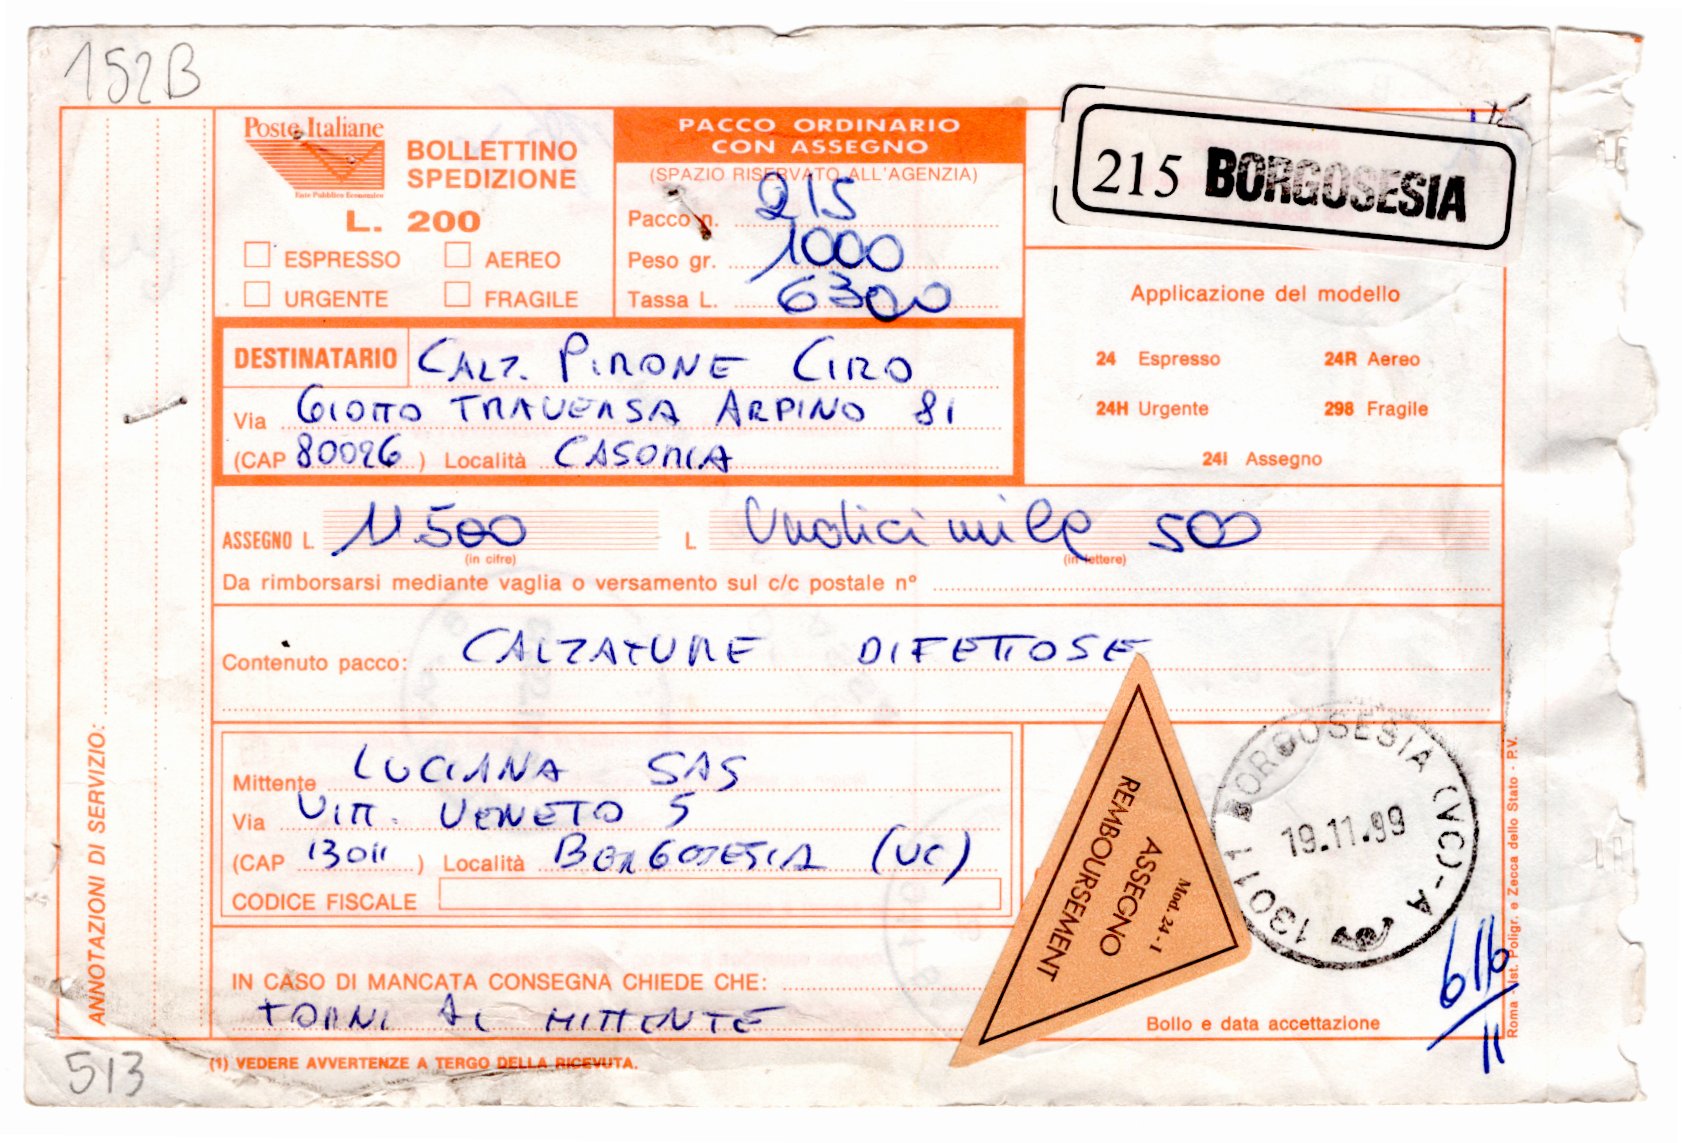 152B
Poste Italiane
Ente Pubblico Economico
BOLLETTINO
SPEDIZIONE
L. 200
ESPRESSO AEREO
URGENTE FRAGILE
PACCO ORDINARIO
CON ASSEGNO
(SPAZIO RISERVATO ALL'AGENZIA)
Pacco n. 215
Peso gr. 1000
Tassa L. 6300
215 BORGOSESIA
Applicazione del modello
24 Espresso 24R Aereo
24H Urgente 298 Fragile
24I Assegno
DESTINATARIO CALZ. PIRONE CIRO
Via GIOTTO TRAVERSA ARPINO 81
(CAP 80026) Località CASORIA
ASSEGNO L. 11.500 L Undicimila 500
(in cifre) (in lettere)
Da rimborsarsi mediante vaglia o versamento sul c/c postale nº
Contenuto pacco: CALZATURE DIFETTOSE
Mittente LUCIANA SAS
Via VITT. VENETO 5
(CAP 13011) Località BORGOSESIA (VC)
CODICE FISCALE
IN CASO DI MANCATA CONSEGNA CHIEDE CHE:
TORNI AL MITTENTE
Mod. 24-I
ASSEGNO
REMBOURSEMENT
13011 BORGOSESIA (VC) - A
19.11.99
Bollo e data accettazione
ANNOTAZIONI DI SERVIZIO:
Roma - Ist. Poligr. e Zecca dello Stato - P.V.
(1) VEDERE AVVERTENZE A TERGO DELLA RICEVUTA.
513